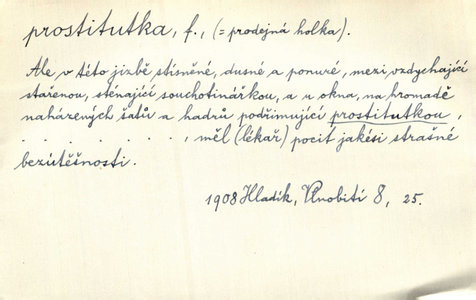 prostitutka, f., (= prodejná holka).
Ale v této jizbě stísněné, dusné a ponuré, mezi vzdychající
stařenou, sténající souchotinářkou, a u okna, na hromadě
naházených šatů a hadrů podřimující prostitutkou,
. . . . . . . ., měl (lékař) pocit jakési strašné
bezútěšnosti.
1908 Hladík, Vlnobití 8, 25.